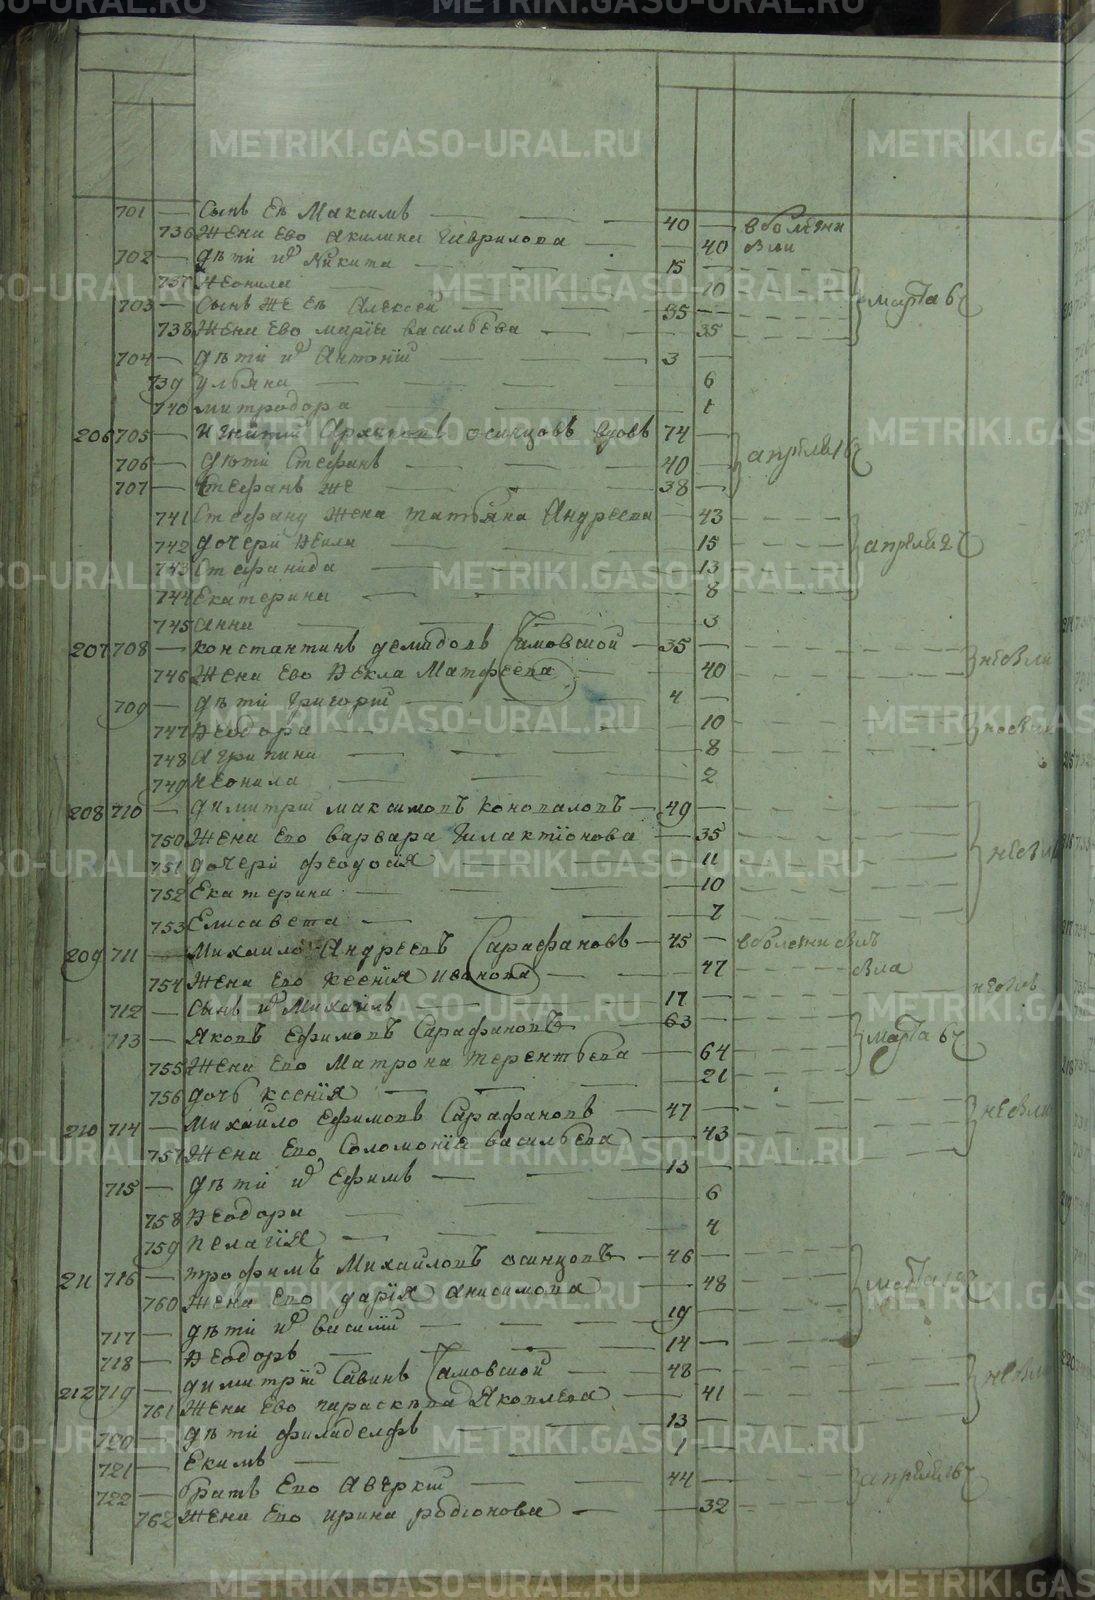 METRIKI.GASO-URAL.RU
701 — Сынъ Еѣ Максимъ — 40 — в болезни
736 Жена Ево Акилина Гаврилова — 40 были
702 — дѣти ихъ Никита — 15
737 Неонила — 10 марта 6
703 — Сынъ же еѣ Алексей — 35
738 Жена Ево мария васильева — 35
704 — дѣти ихъ Антоній — 3
739 ульяна — 6
740 митродора — 1
206 705 — осинцовъ вдовъ 74 — апреля 16
706 — дѣти Стефанъ — 40
707 — Стефанъ же — 38
741 Стефану жена татьяна Андреева — 43
742 дочери — 15 апреля 2
743 Стефанида — 13
744 Екатерина — 8
745 анна — 3
207 708 — константинъ демидовъ Тамовской — 35 —
746 Жена Ево Ѳекла Матфеева — 40
709 — дѣти григорий — 4 —
747 Ѳеодора — 10
748 Агрипина — 8
749 неонила — 2
208 710 — димитрий максимовъ коноваловъ — 49 —
750 Жена Его варвара Галактіонова — 35
751 дочери феодосія — 11
752 Екатерина — 10
753 Елисавета — 7
209 711 — Михайло Андреевъ Сарафановъ — 45 — в болезни былъ
754 Жена Его ксенія иванова — 47 была
712 — Сынъ ихъ Михаилъ — 17 —
713 — Яковъ Ефимовъ Сарафановъ — 63 — марта 6
755 Жена Его Матрона терентьева — 64
756 дочь ксенія — 21
210 714 — Михайло Ефимовъ Сарафановъ — 47 —
757 Жена Его Соломонія васильева — 43
715 — дѣти ихъ Ефимъ — 13 —
758 Ѳеодора — 6
759 пелагія — 4
211 716 — трофимъ Михайловъ осинцовъ — 46 —
760 Жена Его дарія анисимова — 48
717 — дѣти ихъ василий — 19 —
718 — Ѳеодоръ — 14 —
212 719 — димитрий Савинъ Тамовской — 48 —
761 Жена Ево параскева Яковлева — 41
720 — дѣти филаделфъ — 13 —
721 — Екимъ — 1 —
722 — братъ Его Аверкий — 44 — апреля 16
762 Жена Его ирина родіонова — 32